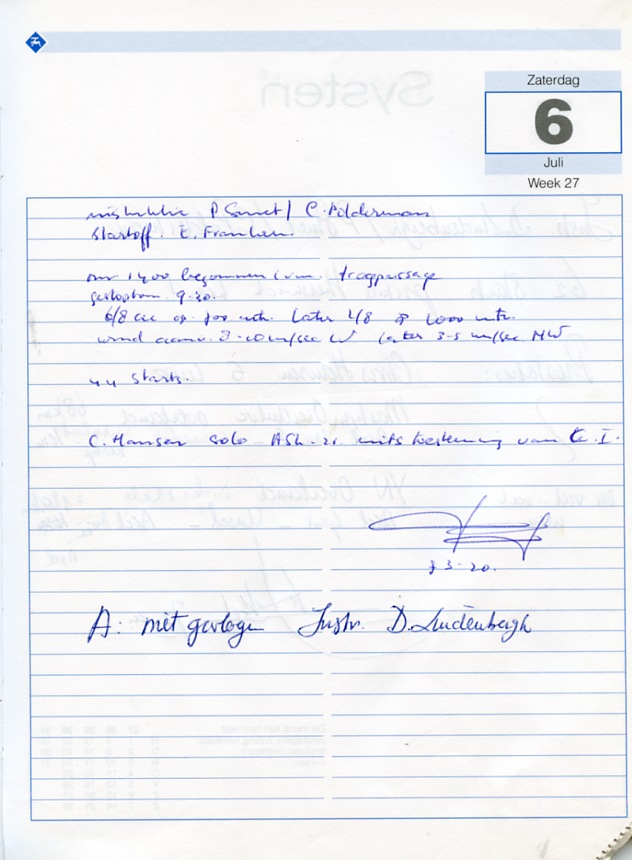 Zaterdag
6
Juli
Week 27
P Smet / C. Polderman
Startoff. E. Franken.
om 1400 begonnen i.v.m. trogpassage
gestopt om 9.30.
6/8 cu op 700 mtr. later 4/8 op 1000 mtr.
wind 8-10 m/sec W later 3-5 m/sec NW
44 starts.
C. Hansen solo ASK-21 mits toestemming van I.
20.
A: niet gevlogen Instr. D. Ludenbergh